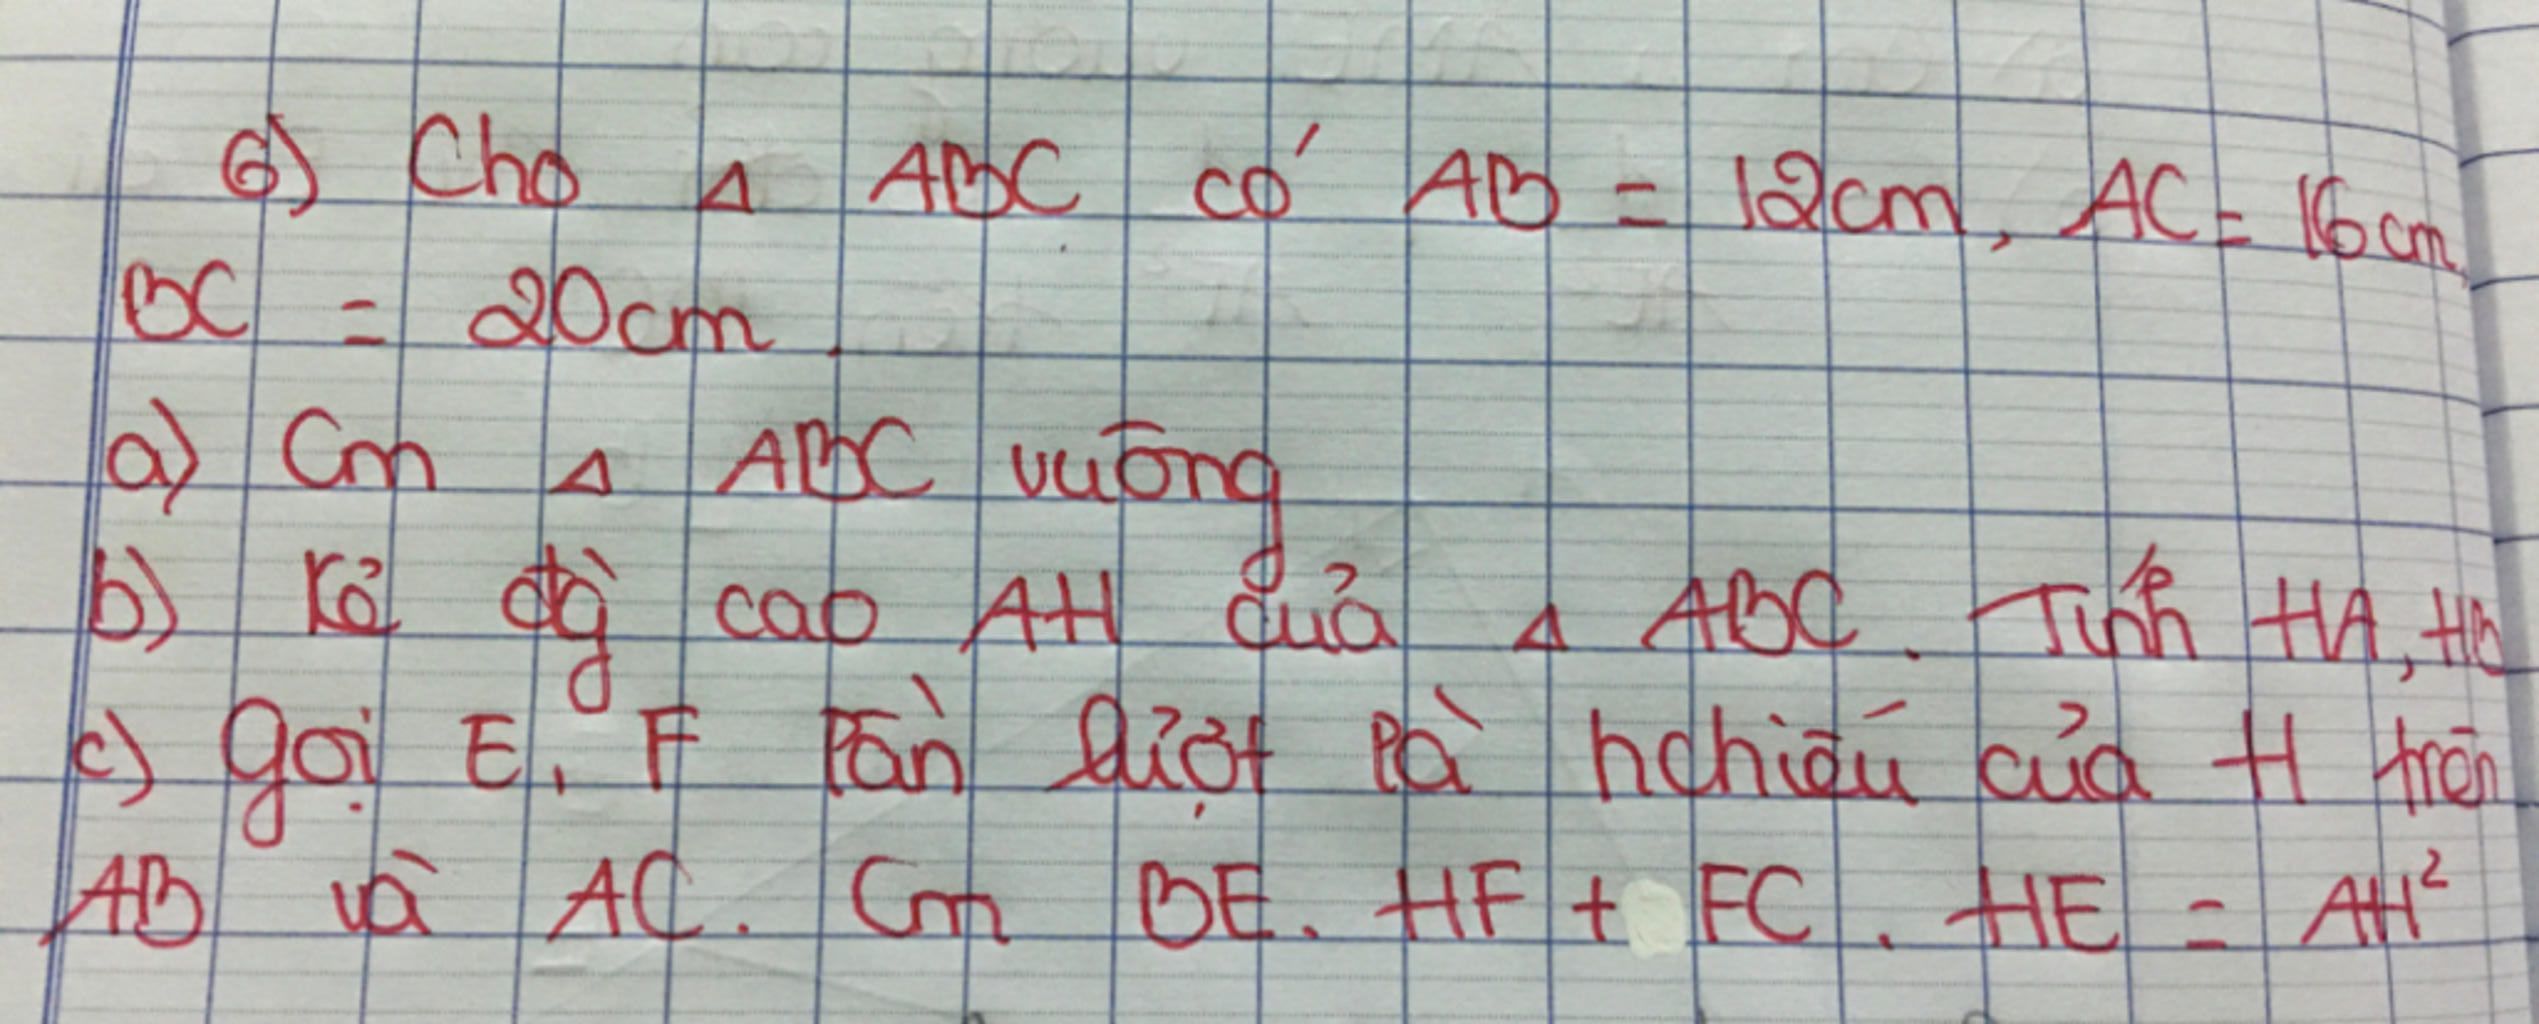 6) Cho Δ ABC có AB = 12cm, AC = 16cm,
BC = 20cm.
a) Cm Δ ABC vuông
b) Kẻ đg̀ cao AH của Δ ABC. Tính HA, HB
c) gọi E, F lần lượt là hchiếu của H trên
AB và AC. Cm BE. HF + FC. HE = AH²